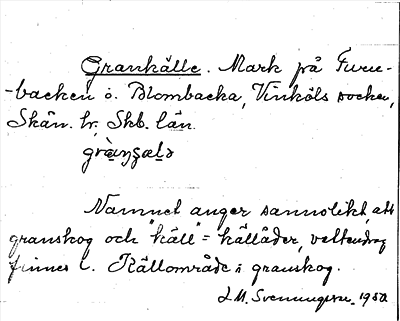 Grankälle. Mark på Furu-
-backen ö. Blombacka, Vinköls socken,
Skån. hr, Skb. län.
Namnet anger sannolikt, att
granskog och "käll" = källåder, vattendrag
finnes l. Källområde i granskog.
J. M. Svenungson. 1950